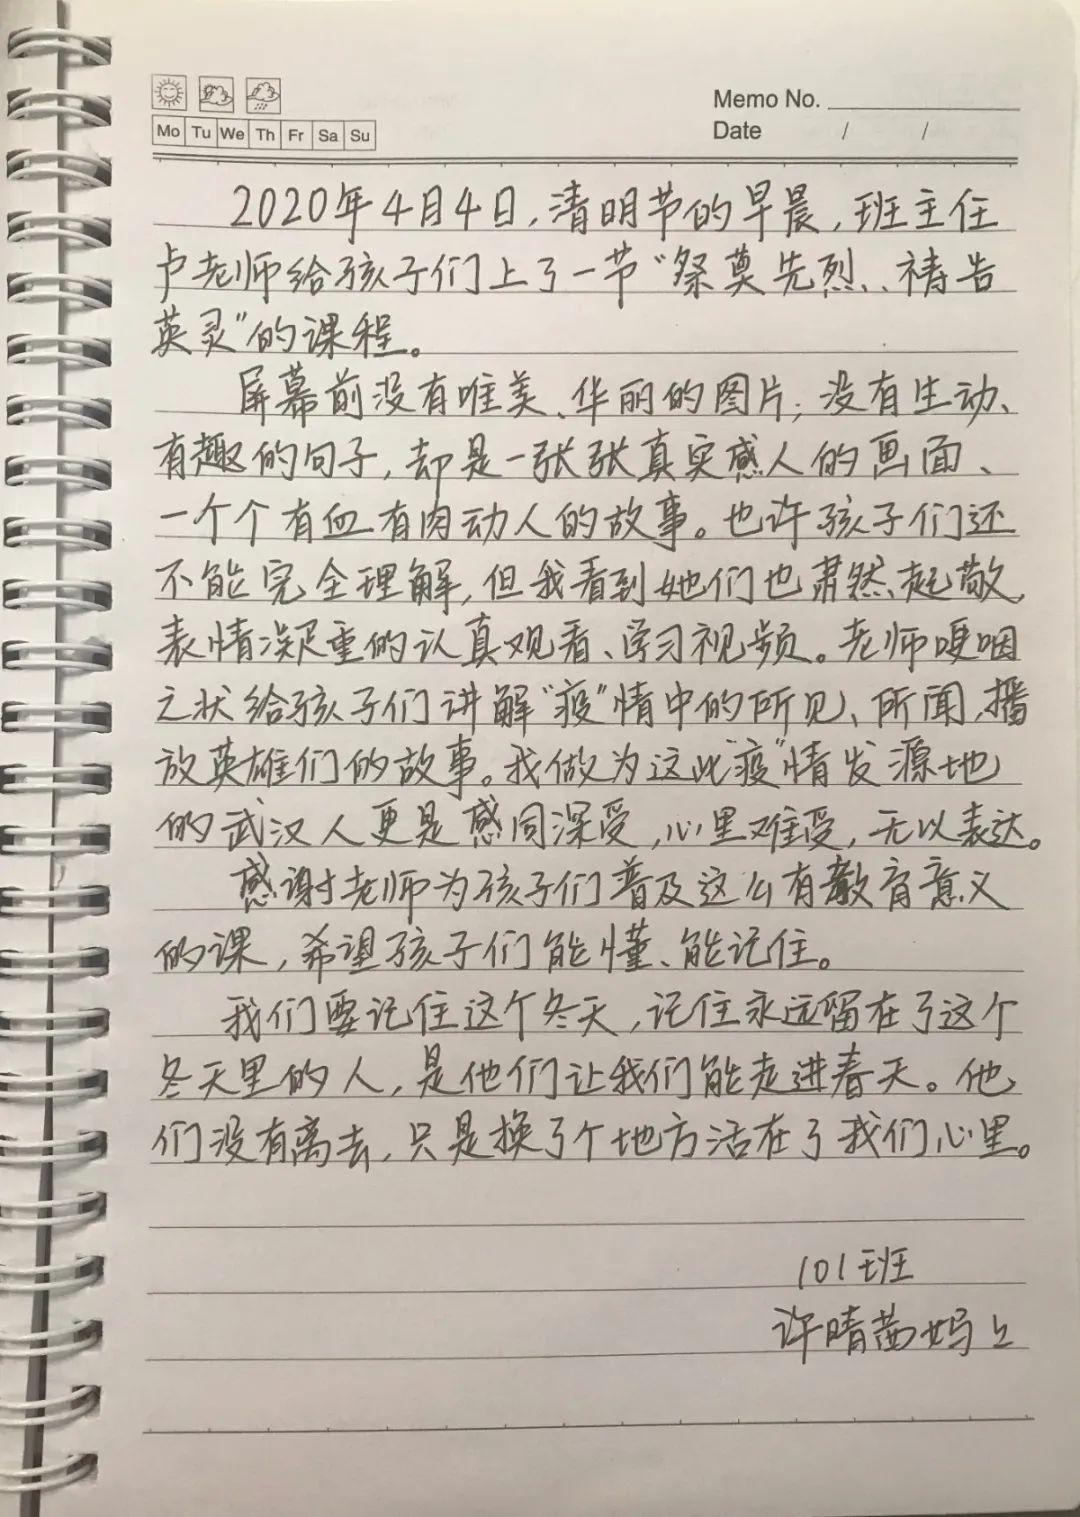 Memo No.
Mo Tu We Th Fr Sa Su
Date / /
2020年4月4日,清明节的早晨,班主任
卢老师给孩子们上了一节“祭奠先烈、祷告
英灵”的课程。
屏幕前没有唯美、华丽的图片;没有生动、
有趣的句子,却是一张张真实感人的画面、
一个个有血有肉动人的故事。也许孩子们还
不能完全理解,但我看到她们也肃然起敬,
表情凝重的认真观看、学习视频。老师哽咽
之状给孩子们讲解“疫”情中的所见、所闻,播
放英雄们的故事。我做为这此“疫”情发源地
的武汉人更是感同深受,心里难受,无以表达。
感谢老师为孩子们普及这么有教育意义
的课,希望孩子们能懂、能记住。
我们要记住这个冬天,记住永远留在了这个
冬天里的人,是他们让我们能走进春天。他
们没有离去,只是换了个地方活在了我们心里。
101班
许晴茜妈上